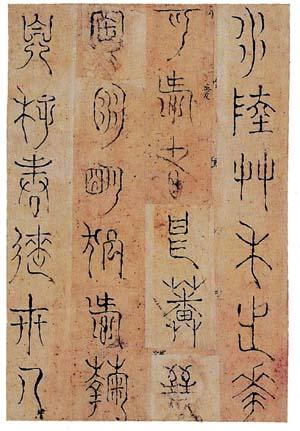 水陸艸木之華
可愛者甚蕃晉
陶淵明獨愛菊
自李唐來世人